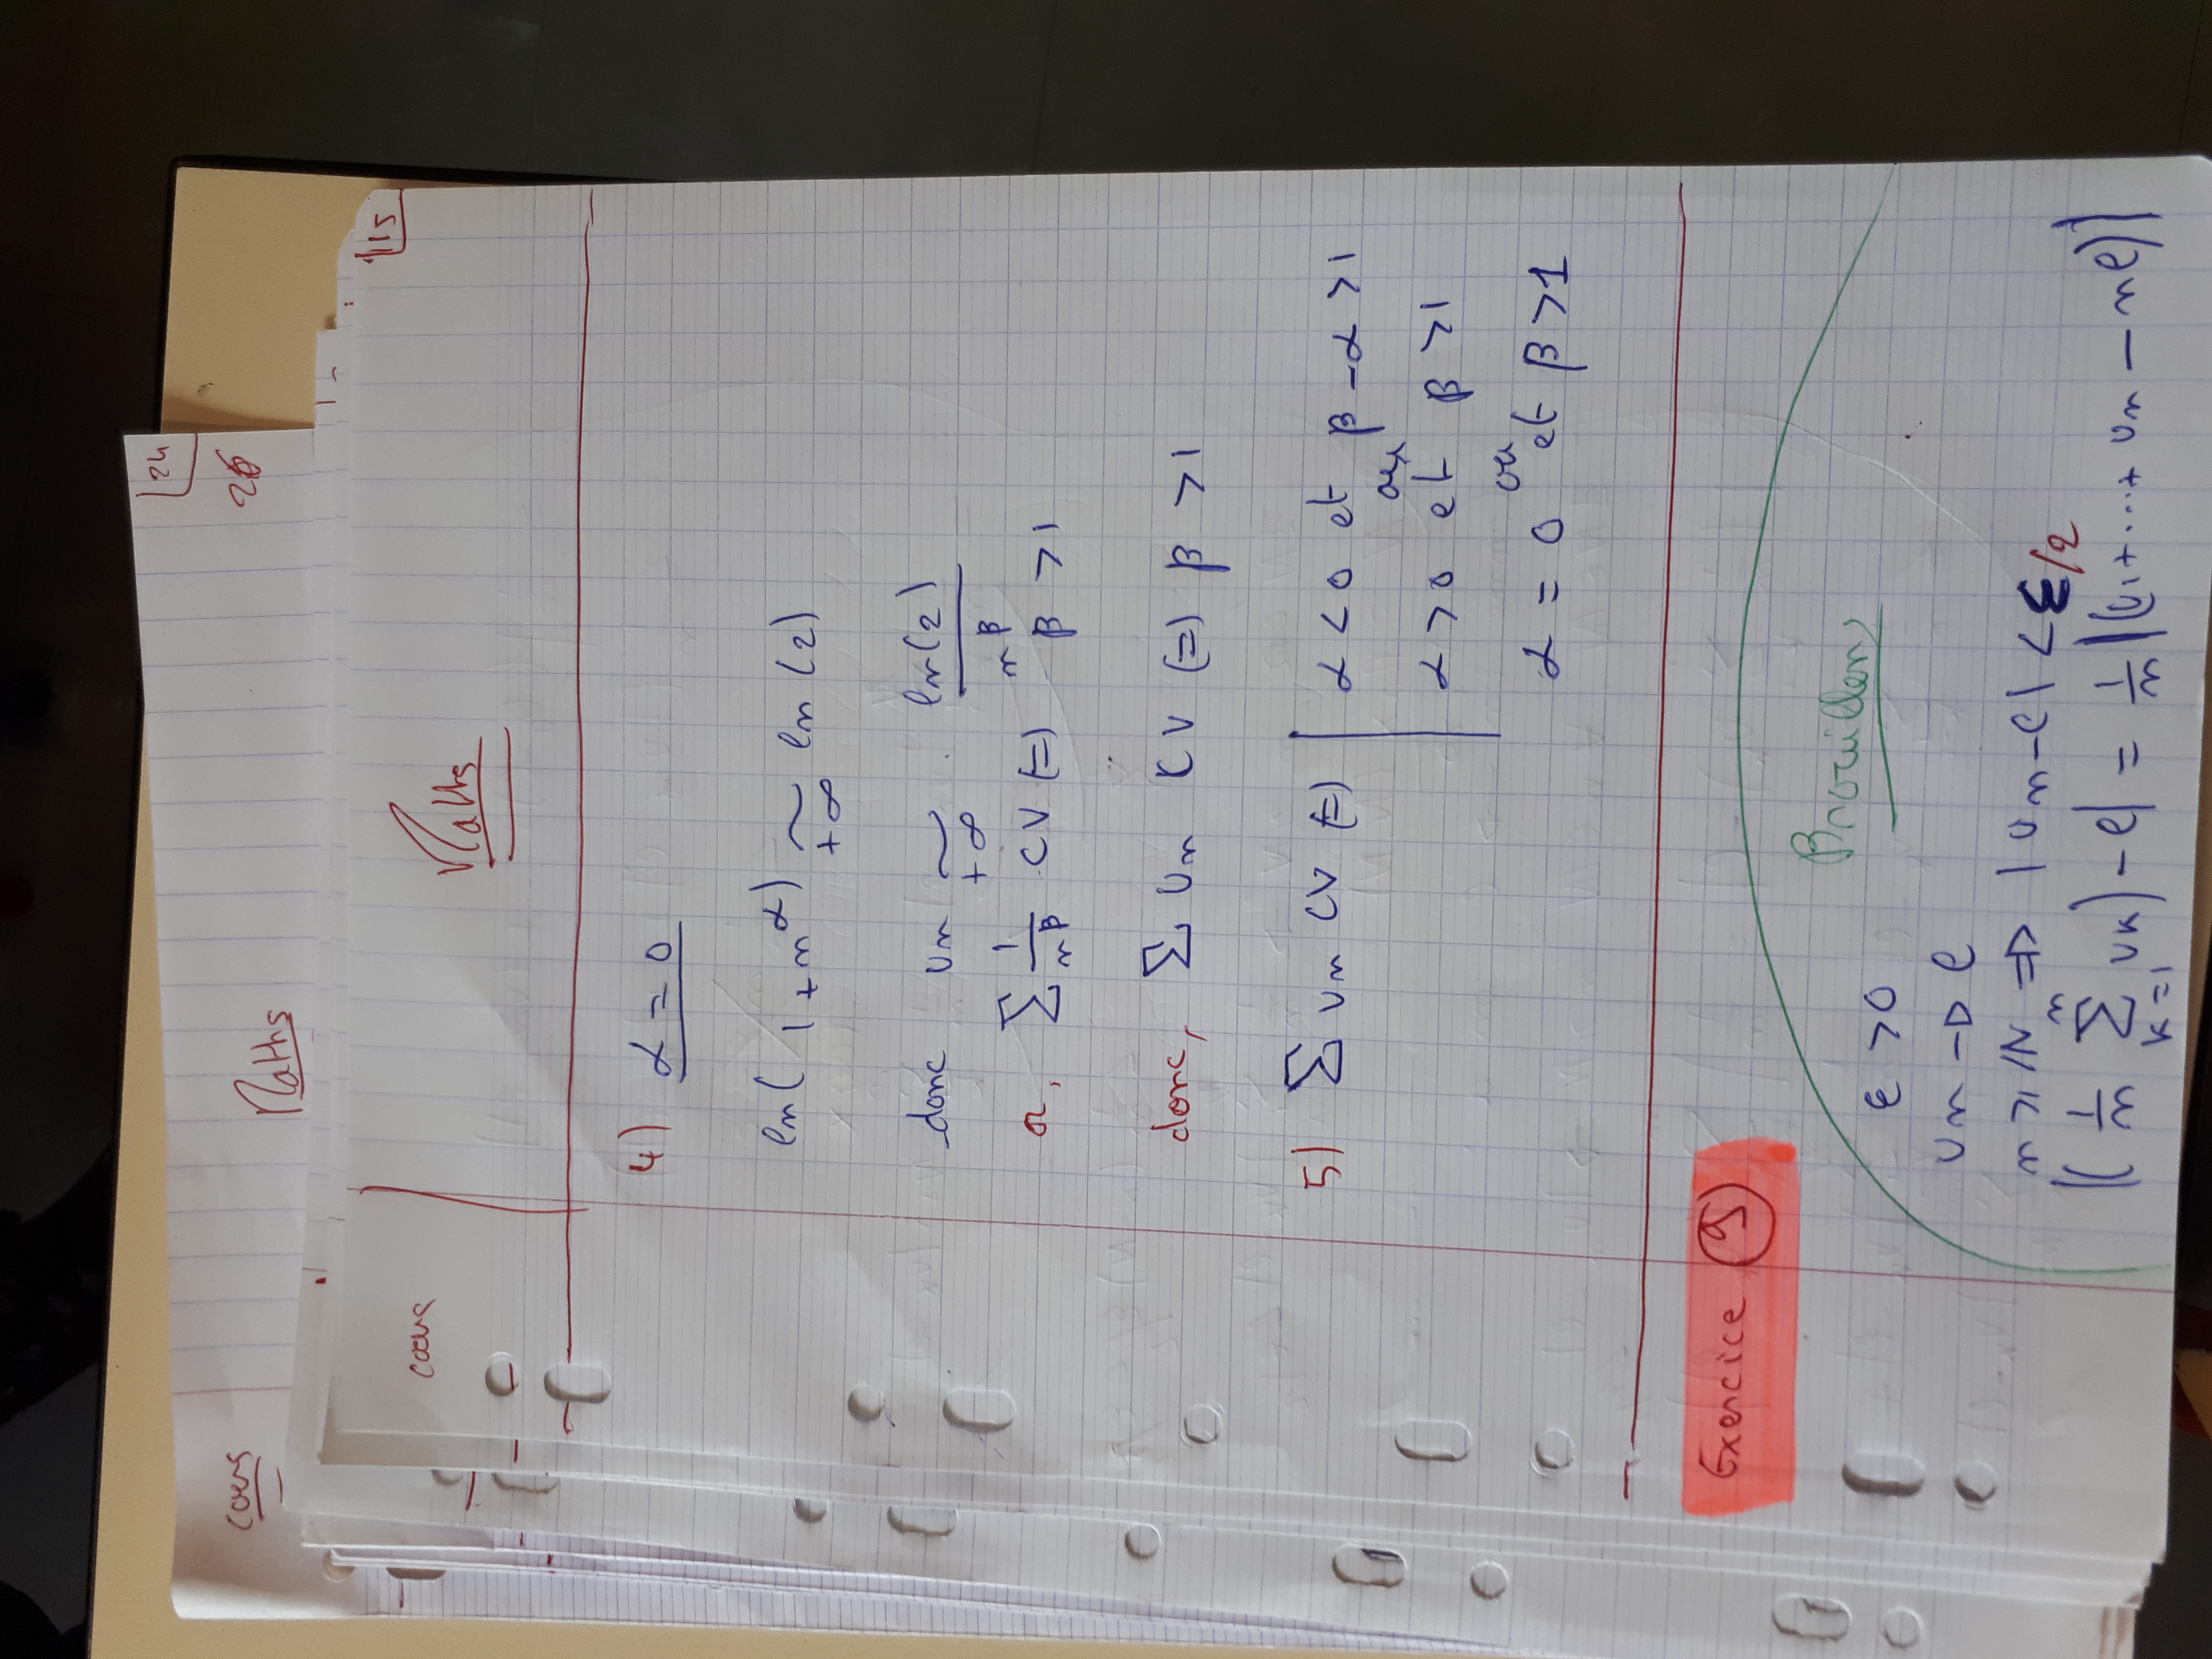 24
26
cours
Maths
115
cours
Maths
4) α = 0
ln(1+n^α) ~ ln(2)
+∞
donc un ~ ln(2)/n^β
+∞
or, Σ 1/n^β CV (=) β >1
donc, Σ un CV (=) β >1
5) Σ un CV (=) | α<0 et β-α >1
ou
α>0 et β >1
ou
α = 0 et β >1
Exercice 9
Brouillon
ε >0
un → l
n ⩾ N => |un-l| < ε/2
|(1/n Σ_{k=1}^{n} uk) - l| = 1/n |(u1+....+ un - nl)|